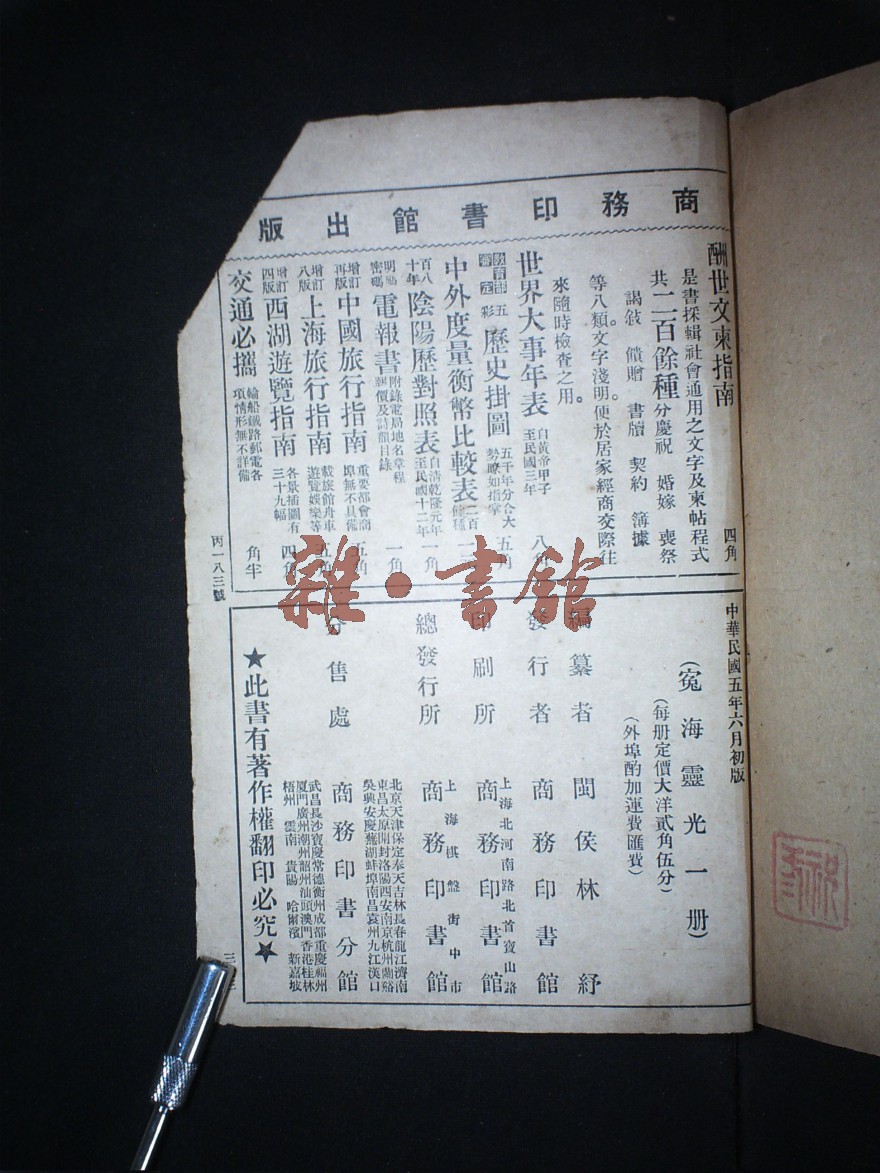 商務印書館出版
酬世文柬指南 四角
是書採輯社會通用之文字及柬帖程式
共二百餘種分慶祝 婚嫁 喪祭
謁㪘 饋贈 書牘 契約 簿據
等八類文字淺明便於居家經商交際往
來隨時檢查之用。
世界大事年表 自黃帝甲子至民國三年 八角
教育部審定 五彩 歷史掛圖 五千年分合大勢瞭如指掌 五角
中外度量衡幣比較表 二百餘種
百八十年 陰陽歷對照表 自清乾隆元年至民國十二年 一角
明密碼 電報書 附錄電局地名章程 價及詩韻目錄 一角
增訂再版 中國旅行指南 重要都會商埠無不具備 五角
增訂八版 上海旅行指南 載旅館舟車遊覽娛樂等 五角
增訂四版 西湖遊覽指南 各景插圖有三十九幅 四角
交通必攜 輪船鐵路郵電各項情形無不詳備 角半
丙一八三號
中華民國五年六月初版
(冤海靈光一册)
(每册定價大洋貳角伍分)
(外埠酌加運費匯費)
編纂者 閩侯林紓
發行者 商務印書館
印刷所 上海北河南路北首寶山路 商務印書館
總發行所 上海棋盤街中市 商務印書館
分售處 商務印書分館
北京天津保定奉天吉林長春龍江濟南
東昌太原開封洛陽西安南京杭州蘭谿
吳興安慶蕪湖蚌埠南昌袁州九江漢口
武昌長沙寶慶常德衡州成都重慶福州
厦門廣州潮州韶州汕頭澳門香港桂林
梧州 雲南 貴陽 哈爾濱 新嘉坡
★此書有著作權翻印必究★
雜·書館